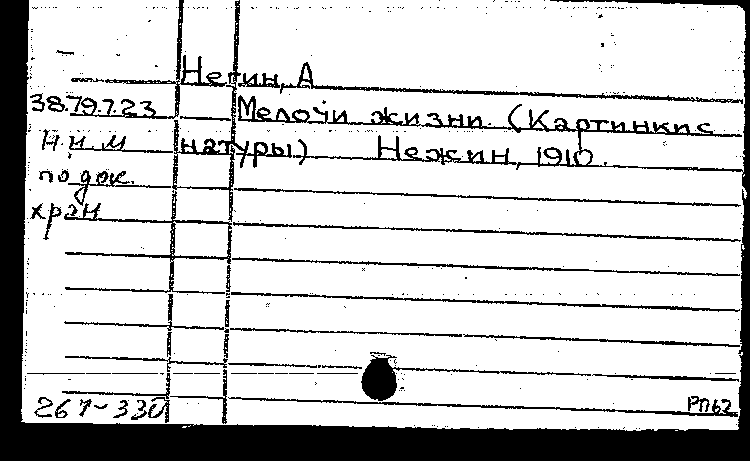 Негин, А
38.79.7.23 Мелочи жизни. (Картинки с
н.и.м натуры) Нежин, 1910.
по док.
хран
267-330
РП62